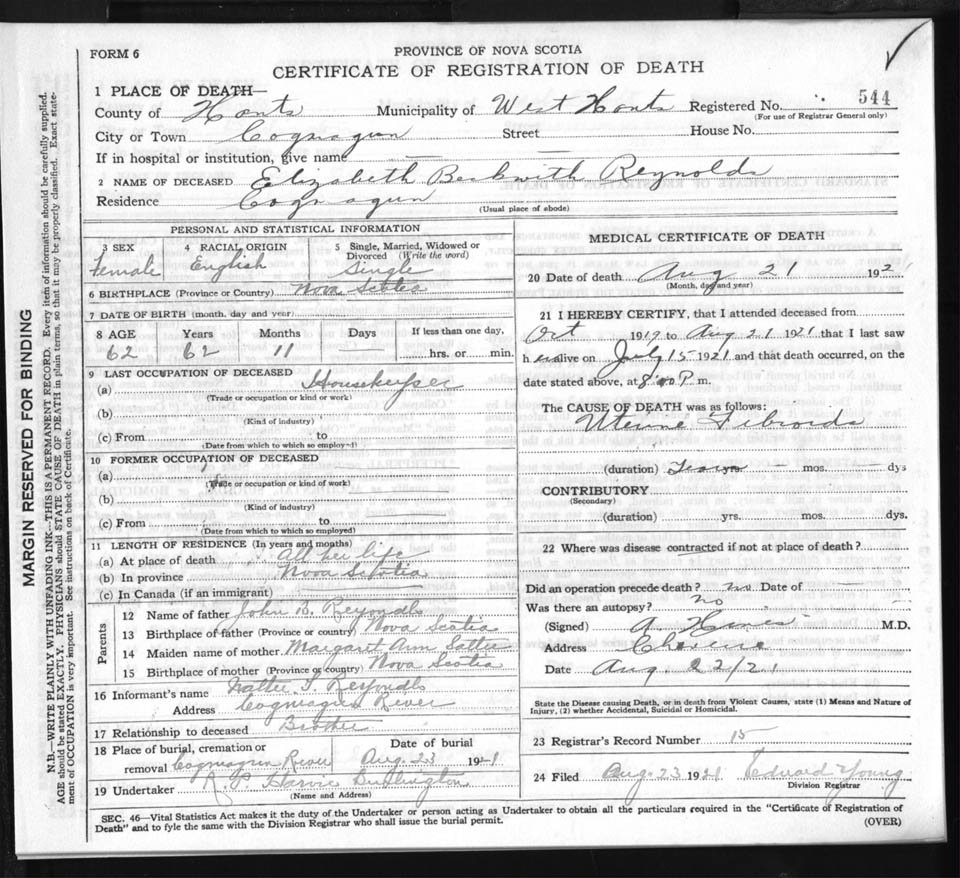 FORM 6
PROVINCE OF NOVA SCOTIA
CERTIFICATE OF REGISTRATION OF DEATH
1 PLACE OF DEATH—
County of Hants Municipality of West Hants Registered No. 544
(For use of Registrar General only)
City or Town Cogmagun Street House No.
If in hospital or institution, give name —
2 NAME OF DECEASED Elizabeth Beckwith Reynolds
Residence Cogmagun
(Usual place of abode)
PERSONAL AND STATISTICAL INFORMATION
3 SEX Female
4 RACIAL ORIGIN English
5 Single, Married, Widowed or Divorced (Write the word) Single
6 BIRTHPLACE (Province or Country) Nova Scotia
7 DATE OF BIRTH (month, day and year)
8 AGE Years Months Days If less than one day,
62 62 11 — hrs. or min.
9 LAST OCCUPATION OF DECEASED
(a) Housekeeper
(Trade or occupation or kind or work)
(b)
(Kind of industry)
(c) From to
(Date from which to which so employed)
10 FORMER OCCUPATION OF DECEASED
(a)
(Trade or occupation or kind of work)
(b)
(Kind of industry)
(c) From to
(Date from which to which so employed)
11 LENGTH OF RESIDENCE (In years and months)
(a) At place of death All her life
(b) In province Nova Scotia
(c) In Canada (if an immigrant)
Parents
12 Name of father John B. Reyondls
13 Birthplace of father (Province or country) Nova Scotia
14 Maiden name of mother Margaret Ann
15 Birthplace of mother (Province or country) Nova Scotia
16 Informant's name Reyondls
Address Cogmagun River
17 Relationship to deceased Brother
18 Place of burial, cremation or removal Cogmagun River
Date of burial Aug. 23 1921
19 Undertaker Harvie Burlington
(Name and Address)
MEDICAL CERTIFICATE OF DEATH
20 Date of death Aug 21 192
(Month, day and year)
21 I HEREBY CERTIFY, that I attended deceased from
Oct 1919 to Aug 21 1921 that I last saw
h er alive on July 15 1921 and that death occurred, on the
date stated above, at P. m.
The CAUSE OF DEATH was as follows:
Uterine Fibroids
(duration) Years — mos. — dys
CONTRIBUTORY
(Secondary)
(duration) yrs. mos. dys.
22 Where was disease contracted if not at place of death?
Did an operation precede death? no Date of —
Was there an autopsy? no
(Signed) A M.D.
Address
Date Aug. 22/21
State the Disease causing Death, or in death from Violent Causes, state (1) Means and Nature of
Injury, (2) whether Accidental, Suicidal or Homicidal.
23 Registrar's Record Number 15
24 Filed Aug. 23 1921 Edward Young
Division Registrar
SEC. 46—Vital Statistics Act makes it the duty of the Undertaker or person acting as Undertaker to obtain all the particulars required in the "Certificate of Registration of
Death" and to fyle the same with the Division Registrar who shall issue the burial permit.
(OVER)
MARGIN RESERVED FOR BINDING
N.B.—WRITE PLAINLY WITH UNFADING INK—THIS IS A PERMANENT RECORD. Every item of information should be carefully supplied.
AGE should be stated EXACTLY. PHYSICIANS should STATE CAUSE OF DEATH in plain terms, so that it may be properly classified. Exact statement of OCCUPATION is very important. See instructions on back of Certificate.